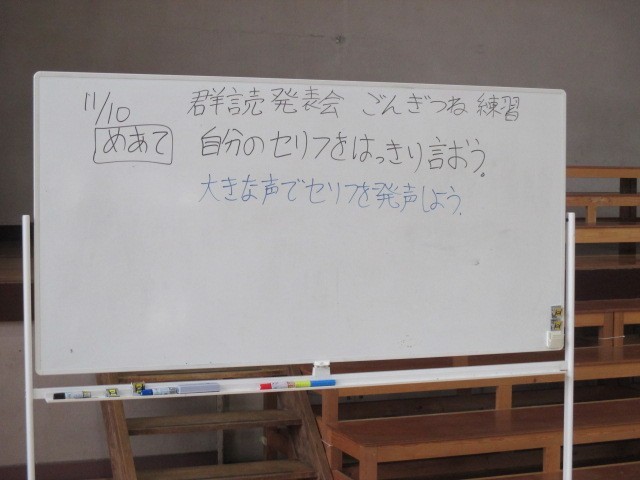 11/10 群読発表会 ごんぎつね 練習
めあて 自分のセリフをはっきり言おう。
大きな声でセリフを発声しよう.